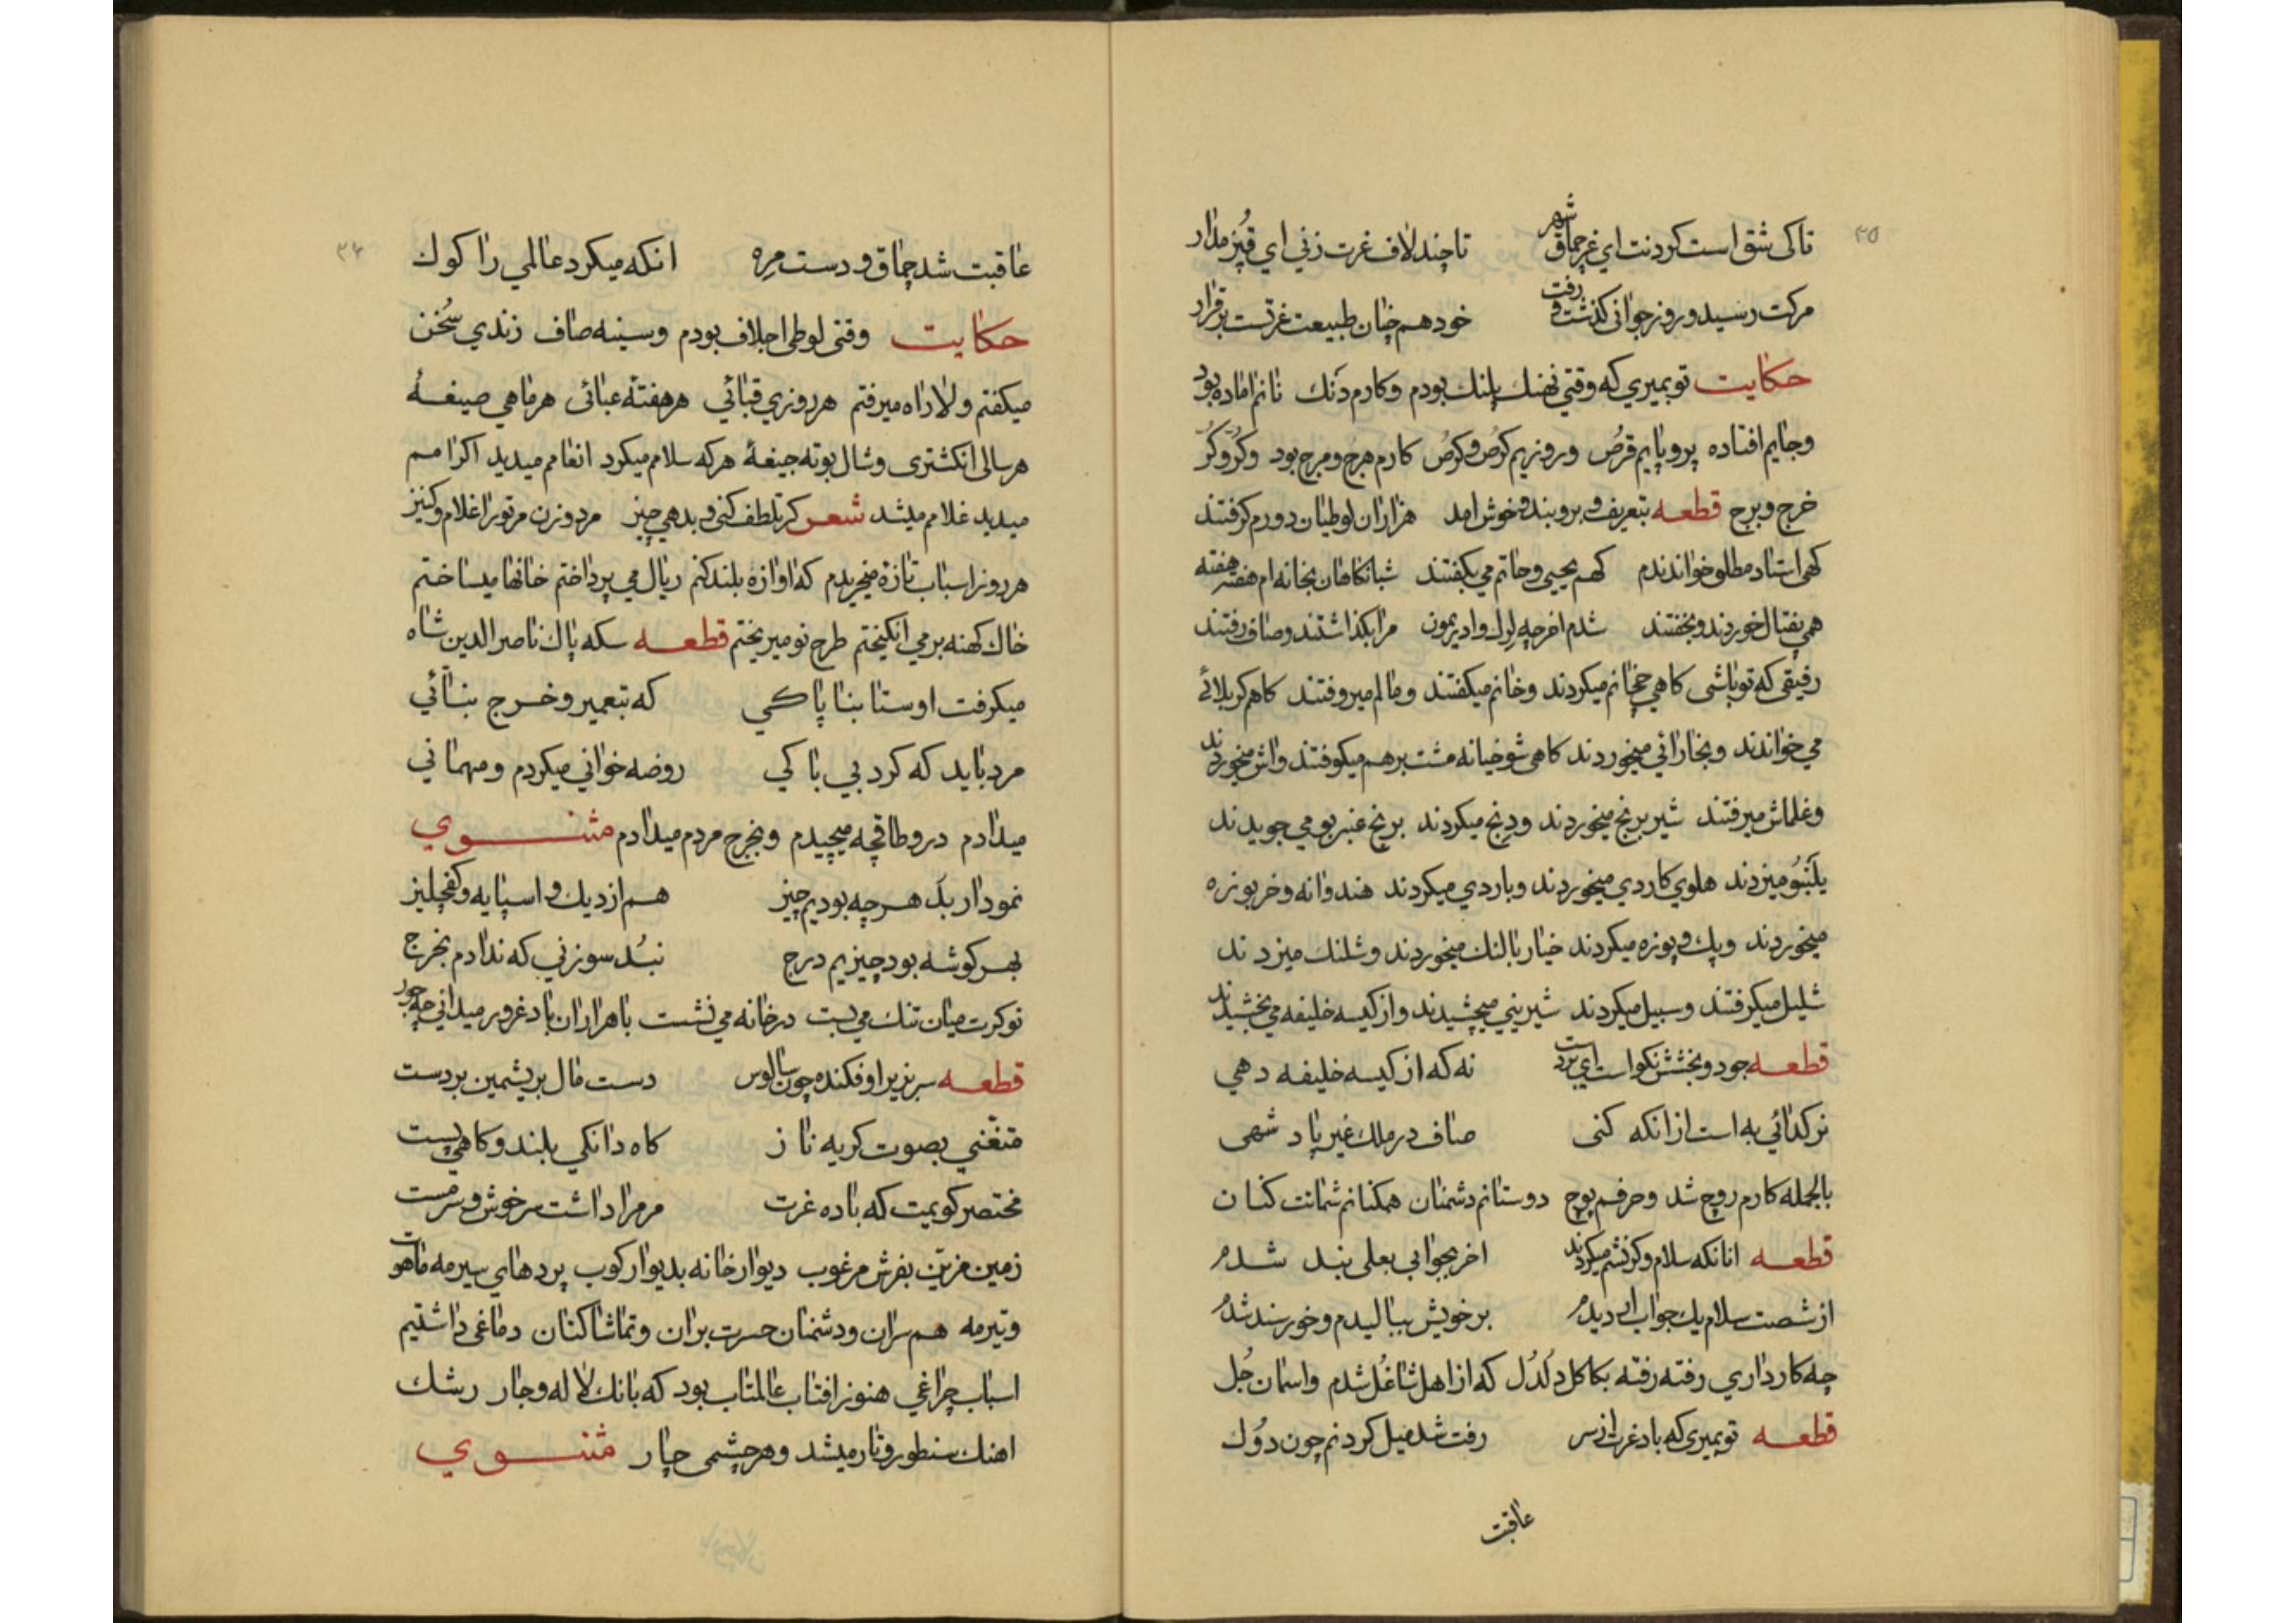 ۳۵
تاکی شق است کردنت ای غر چماق شهر تا چند لاف غرت زنی ای قپز مدار
مرکت رسید و روز جوانی کذشت و رفت خود هم چنان طبیعت غرتست برقرار
حکایت تو بمیری که وقتی نهنك پلنك بودم و کارم دنك نانم اماده بود
وجایم افتاده پروپایم قرص وروزیم کرص وکرص کارم هرج ومرج بود وکر وکر
خرج وبرج قطعه بتعریف و بروبند و خوش امد هزاران لوطیان دورم کرفتند
کهی استاد مطلق خواندندم کهم یحیی وحاتم می بکفتند شبانکاهان بخانه ام هفته هفته
همی بقتال خوردند و بخفتند شدم اخر چه لرلك وادیرمون مرا بکذاشتند وصاف رفتند
رفیقی که تو باشی کاهی حجانم میکردند وخانم میکفتند ومالم میروفتند کاهم کربلائی
می خواندند وبخارائی میخوردند کاهی شوخیانه مشت برهم میکوفتند واش میخوردند
وغلماش میرفتند شیر برنج میخوردند ودرنج میکردند برنج عنبربو می جویدند
یلنبو میزدند هلوی کاردی میخوردند وباردی میکردند هندوانه وخربوزه
میخوردند وپك وپوزه میکردند خیار بالنك میخوردند وشلنك میزدند
شلیل میکرفتند وسبیل میکردند شیرینی میچشیدند واز کیسه خلیفه می بخشیدند
قطعه جود و بخشش نکواست ای نه که از کیسه خلیفه دهی
نر کدائی به است از انکه کنی صاف در ملك غیر پادشهی
بالجمله کارم روچ شد وحرفم پوچ دوستانم دشمنان همکنانم شماتت کنان
قطعه انانکه سلام وکرنشم میکردند اخر بجوابی بعلی بند شدم
از شصت سلام یك جواب ار دیدم بر خویش ببالیدم وخورسند شدم
چه کار داری رفته رفته بکاکل دلدل که از اهل شاغل شدم واسمان جل
قطعه تو بمیری که باد غرت از سر رفت شد میل کردنم چون دوك
عاقبت
۳۴
عاقبت شد چماق و دست مره انکه میکرد عالمی را کوك
حکایت وقتی لوطی اجلاف بودم وسینه صاف زندی سخن
میکفتم ولا راه میرفتم هر روزی قبائی هر هفته عبائی هر ماهی صیغه
هر سالی انکشتری وشال بوته جیغه هر که سلام میکرد انعامم میدید اکرامم
میدید غلامم میشد شعر کر تلطف کنی و بدهی چیز مرد وزن مر تورا غلام وکنیز
هر روز اسباب تازه میخریدم که اوازه بلند کنم ریال می پرداختم خانها میساختم
خاك کهنه بر می انکیختم طرح نو میریختم قطعه سکه پاك ناصرالدین شاه
میکرفت اوستا بنا پاکی که بتعمیر وخرج بنائی
مرد باید که کرد بی باکی روضه خوانی میکردم ومهمانی
میدادم در وطاقچه میچیدم وبخرج مردم میدادم مثنوی
نمودار بد هر چه بودیم چیز هم از دیك و اسپایه و کفچلیز
بهر کوشه بود چیزیم درج نبد سوزنی که ندادم بخرج
نوکرت میان تنك می بست در خانه می نشست با هزاران باد غرور میدانی چه جور
قطعه سر بزیر اوفکنده چون سالوس دست مال بریشمین بر دست
متغنی بصوت کریه ناز کاه دانکی بلند وکاهی پست
مختصر کویمت که باده غرت مر مرا داشت سرخوش و سرمست
زمین مزین بفرش مرغوب دیوار خانه بدیوارکوب پردهای سیرمه ماهوت
وتیرمه هم سران ودشمنان حسرت بران وتماشا کنان دماغی داشتیم
اسباب چراغی هنوز افتاب عالمتاب بود که بانك لاله وجار رشك
اهنك سنطور وتار میشد وهر چشمی چار مثنوی